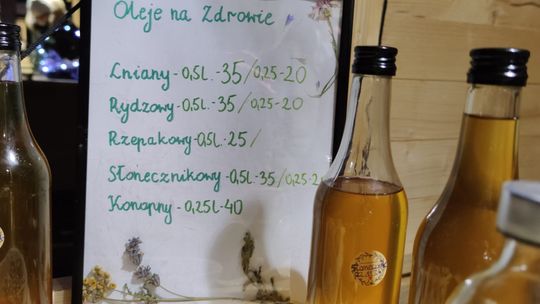 Oleje na Zdrowie
Lniany - 0,5L. - 35 / 0,25 - 20
Rydzowy - 0,5L. - 35 / 0,25 - 20
Rzepakowy - 0,5L. - 25 /
Słonecznikowy - 0,5L. - 35 / 0,25 - 2
Konopny - 0,25L - 40